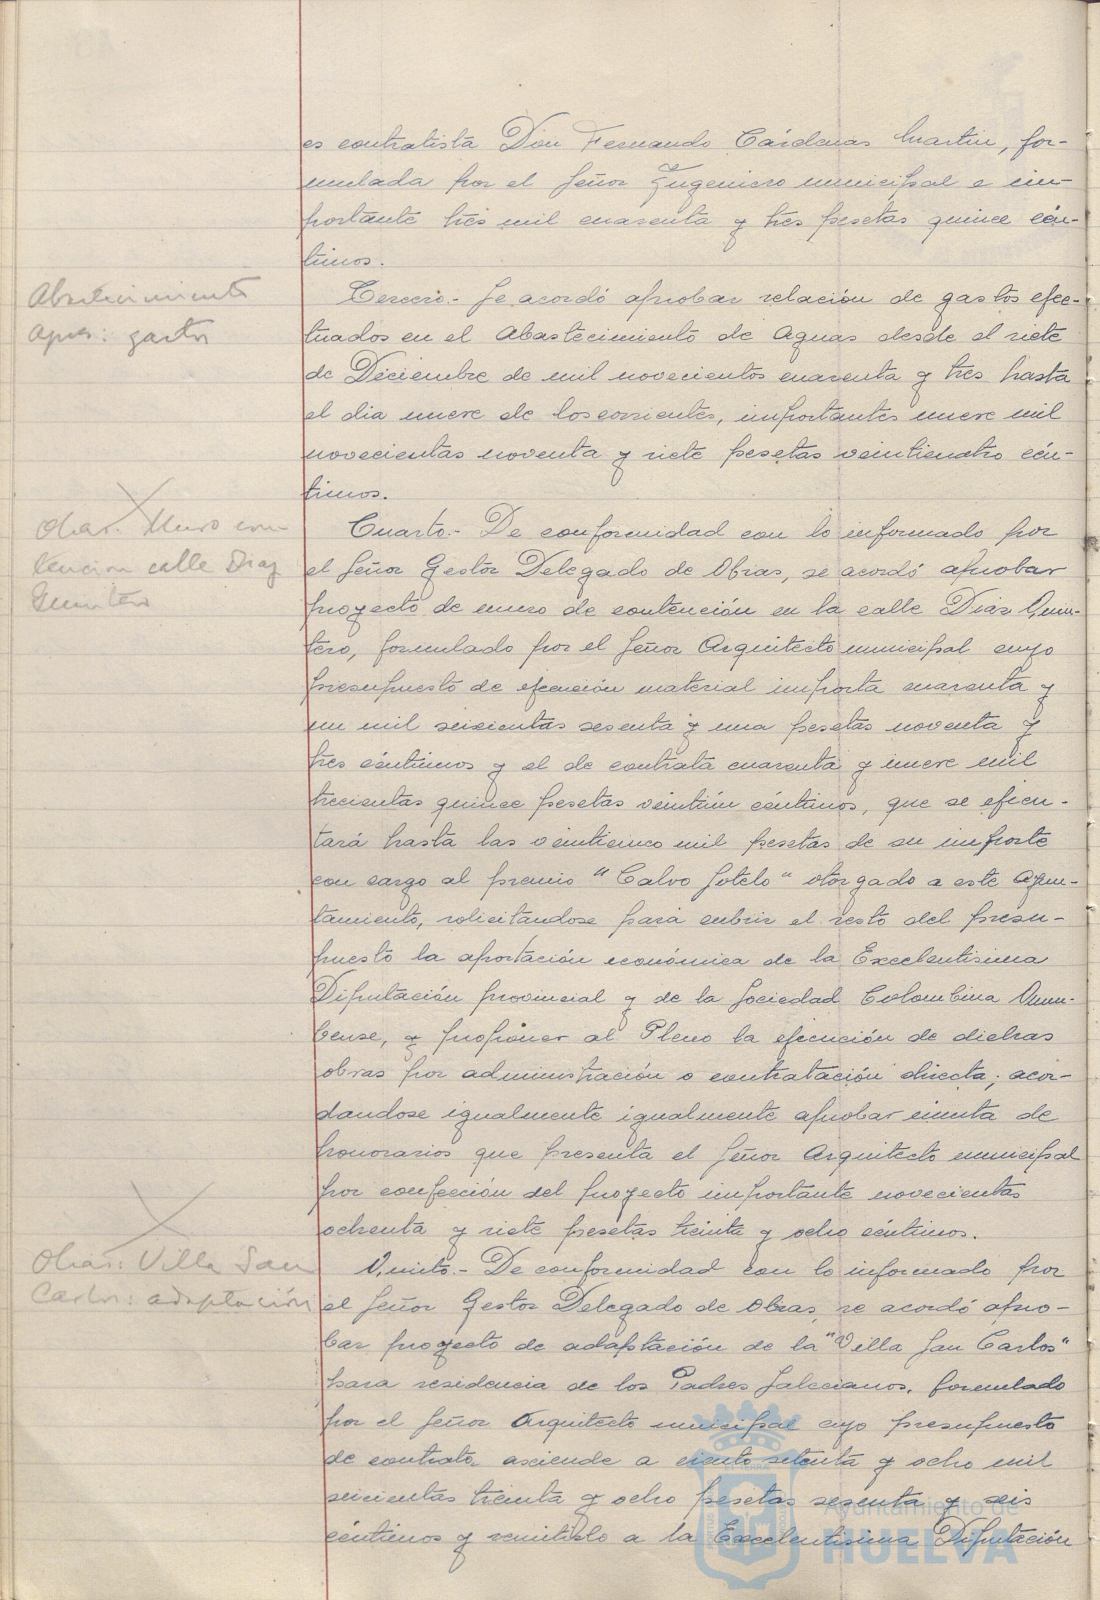 es contratista Don Fernando Cárdenas Martin, for-
mulada por el Señor Ingeniero municipal e im-
portante tres mil cuarenta y tres pesetas quince cén-
timos.
Abastecimiento
aguas: gastos
Tercero.- Se acordó aprobar relación de gastos efec-
tuados en el Abastecimiento de Aguas desde el siete
de Diciembre de mil novecientos cuarenta y tres hasta
el dia nueve de los corrientes, importantes nueve mil
novecientas noventa y siete pesetas veinticuatro cén-
timos.
Obras. Muro con
tencion calle Diaz
Quintero
Cuarto.- De conformidad con lo informado por
el Señor Gestor Delegado de Obras, se acordó aprobar
proyecto de muro de contención en la calle Diaz Quin-
tero, formulado por el Señor Arquitecto municipal cuyo
presupuesto de ejecución material importa cuarenta y
un mil seiscientas sesenta y una pesetas noventa y
tres céntimos y el de contrata cuarenta y nueve mil
trecientas quince pesetas veintiún céntimos, que se ejecu-
tará hasta las veinticinco mil pesetas de su importe
con cargo al premio "Calvo Sotelo" otorgado a este Ayun-
tamiento, solicitandose para cubrir el resto del presu-
puesto la aportación económica de la Excelentisima
Diputación provincial y de la Sociedad Colombina Onu-
bense, y proponer al Pleno la ejecución de dichas
obras por administración o contratación directa; acor-
dandose igualmente igualmente aprobar minuta de
honorarios que presenta el Señor Arquitecto municipal
por confección del proyecto importante novecientas
ochenta y siete pesetas treinta y ocho céntimos.
Obras: Villa San
Carlos: adaptación
Quinto.- De conformidad con lo informado por
el Señor Gestor Delegado de Obras, se acordó apro-
bar proyecto de adaptación de la "Villa San Carlos"
para residencia de los Padres Salecianos, formulado
por el Señor Arquitecto municipal cuyo presupuesto
de contrata asciende a ciento setenta y ocho mil
seicientas treinta y ocho pesetas sesenta y seis
céntimos y remitirlo a la Excelentisima Diputación
Ayuntamiento de
HUELVA